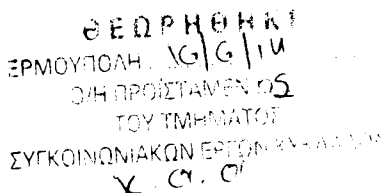 ΘΕΩΡΗΘΗΚΕ
ΕΡΜΟΥΠΟΛΗ 16/6/14
Ο/Η ΠΡΟΪΣΤΑΜΕΝΟΣ
ΤΟΥ ΤΜΗΜΑΤΟΣ
ΣΥΓΚΟΙΝΩΝΙΑΚΩΝ ΕΡΓΩΝ ΚΥΚΛΑΔΩΝ